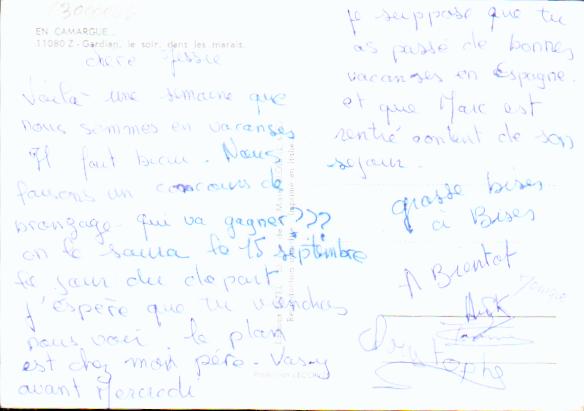 EN CAMARGUE...
11080 Z - Gardian, le soir, dans les marais.
chère Jessie
Voilà une semaine que
nous sommes en vacances
Il fait beau. Nous
faisons un concours de
bronzage - qui va gagner???
on le saura le 15 septembre
le jour du départ
j'espère que tu viendras
nous voir. le plan
est chez mon père - Vas-y
avant Mercredi
je suppose que tu
as passé de bonnes
vacances en Espagne.
et que Marc est
rentré content de son
sejour.
grosse bises
à Bientot
Christophe